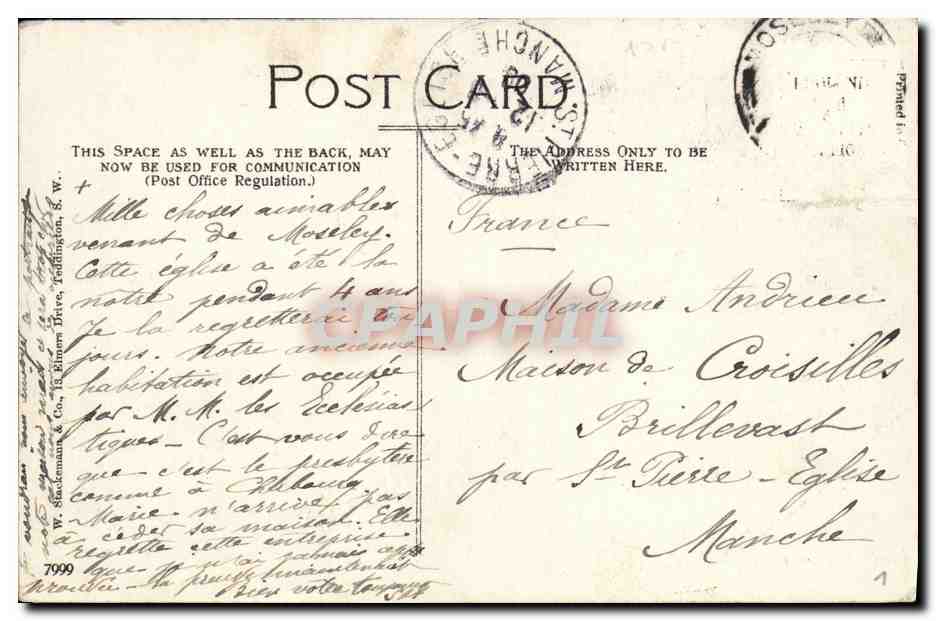 POST CARD
THIS SPACE AS WELL AS THE BACK, MAY
NOW BE USED FOR COMMUNICATION
(Post Office Regulation.)
THE ADDRESS ONLY TO BE
WRITTEN HERE.
Printed in
ST PIERRE-EGLISE
MANCHE
Mille choses aimables
venant de Moseley.
Cette église a été la
notre pendant 4 ans
Je la regretterai tou
jours. Notre ancienne
habitation est occupée
par M. M. les Ecclésias
tiques - C'est vous dire
que c'est le presbytère
comme à Chbourg
Marie n'arrive pas
à céder sa maison. Elle
regrette cette entreprise
que je n'ai jamais app
rouvée - la preuve maintenant
Bien votre toujours
France
Madame Andrieu
Maison de Croisilles
Brillevast
par St Pierre-Eglise
Manche
W. Stackemann & Co., 13, Elmers Drive, Teddington, S. W.
7999
CPAPHIL
1